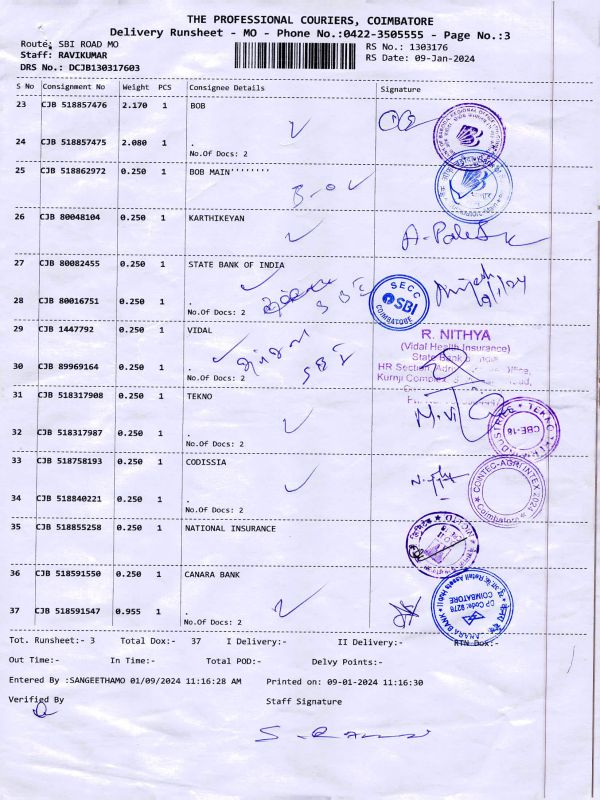 THE PROFESSIONAL COURIERS, COIMBATORE
Delivery Runsheet - MO - Phone No.:0422-3505555 - Page No.:3
Route: SBI ROAD MO
Staff: RAVIKUMAR
DRS No.: DCJB130317603
RS No.: 1303176
RS Date: 09-Jan-2024
S No Consignment No Weight PCS Consignee Details Signature
23 CJB 518857476 2.170 1 BOB
24 CJB 518857475 2.080 1 .
No.Of Docs: 2
25 CJB 518862972 0.250 1 BOB MAIN''''''''
26 CJB 80048104 0.250 1 KARTHIKEYAN
27 CJB 80082455 0.250 1 STATE BANK OF INDIA
28 CJB 80016751 0.250 1 .
SBI
No.Of Docs: 2
SECC
SBI
COIMBATORE
29 CJB 1447792 0.250 1 VIDAL
30 CJB 89969164 0.250 1 .
SBI
No.Of Docs: 2
R. NITHYA
(Vidal Health Insurance)
State Bank
HR Section
Kurnji Complex
31 CJB 518317908 0.250 1 TEKNO
32 CJB 518317987 0.250 1 .
No.Of Docs: 2
TEKNO
CBE-18
33 CJB 518758193 0.250 1 CODISSIA
34 CJB 518840221 0.250 1 .
No.Of Docs: 2
COINTEC-AGRI INTEX 2024
Coimbatore
35 CJB 518855258 0.250 1 NATIONAL INSURANCE
36 CJB 518591550 0.250 1 CANARA BANK
37 CJB 518591547 0.955 1 .
No.Of Docs: 2
Retail Assets Hub II
DP Code: 9278
COIMBATORE
CANARA BANK
Tot. Runsheet:- 3 Total Dox:- 37 I Delivery:- II Delivery:- RTN Dox:-
Out Time:- In Time:- Total POD:- Delvy Points:-
Entered By :SANGEETHAMO 01/09/2024 11:16:28 AM Printed on: 09-01-2024 11:16:30
Verified By Staff Signature